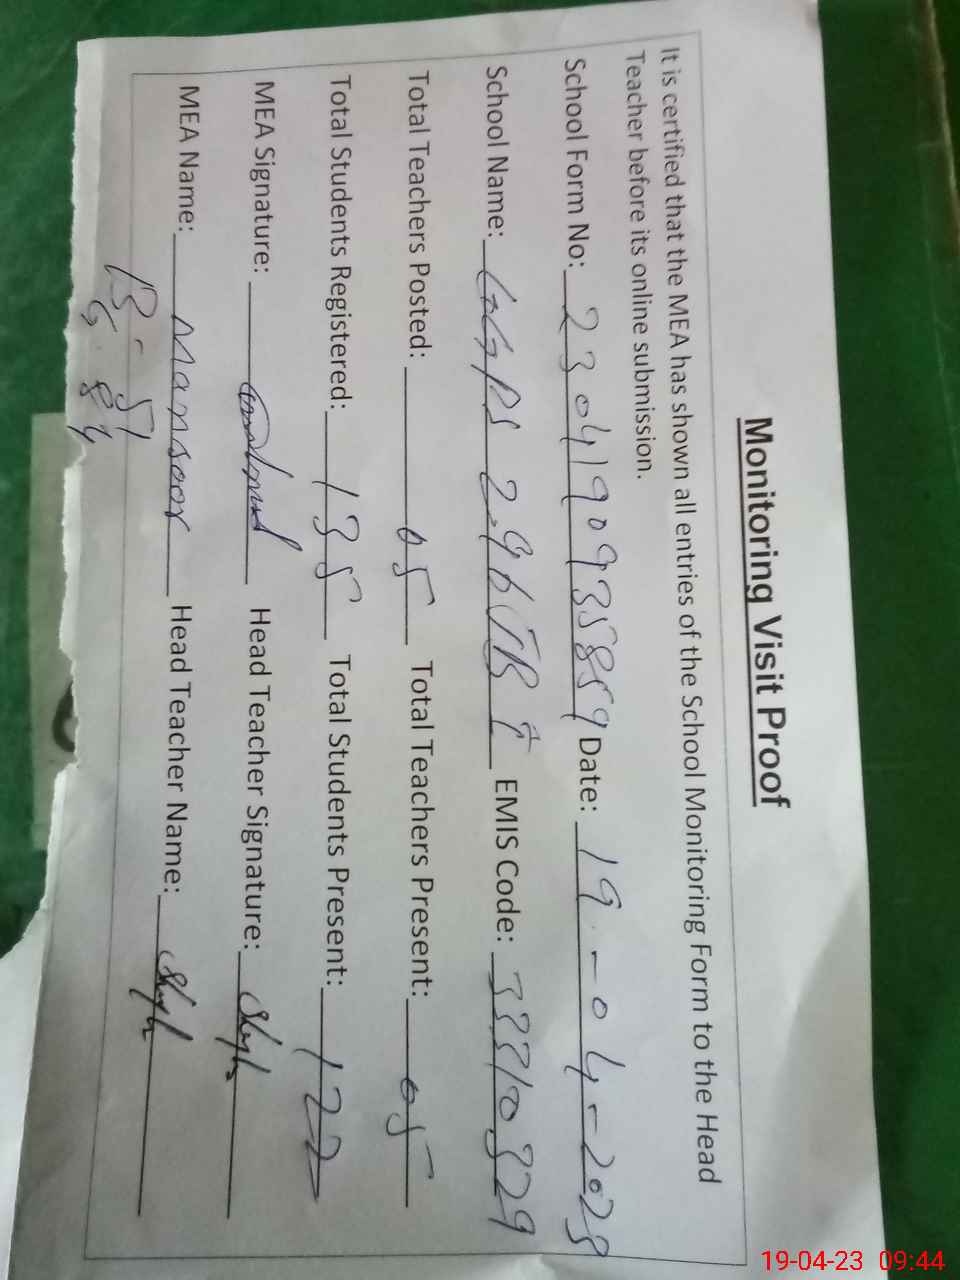 Monitoring Visit Proof
It is certified that the MEA has shown all entries of the School Monitoring Form to the Head
Teacher before its online submission.
School Form No: 230419093589 Date: 19-04-2023
School Name: GGPS 296 GB EMIS Code: 33310329
Total Teachers Posted: 05 Total Teachers Present: 05
Total Students Registered: 135 Total Students Present: 122
MEA Signature: Head Teacher Signature:
MEA Name: Mansoor Head Teacher Name:
19-04-23 09:44